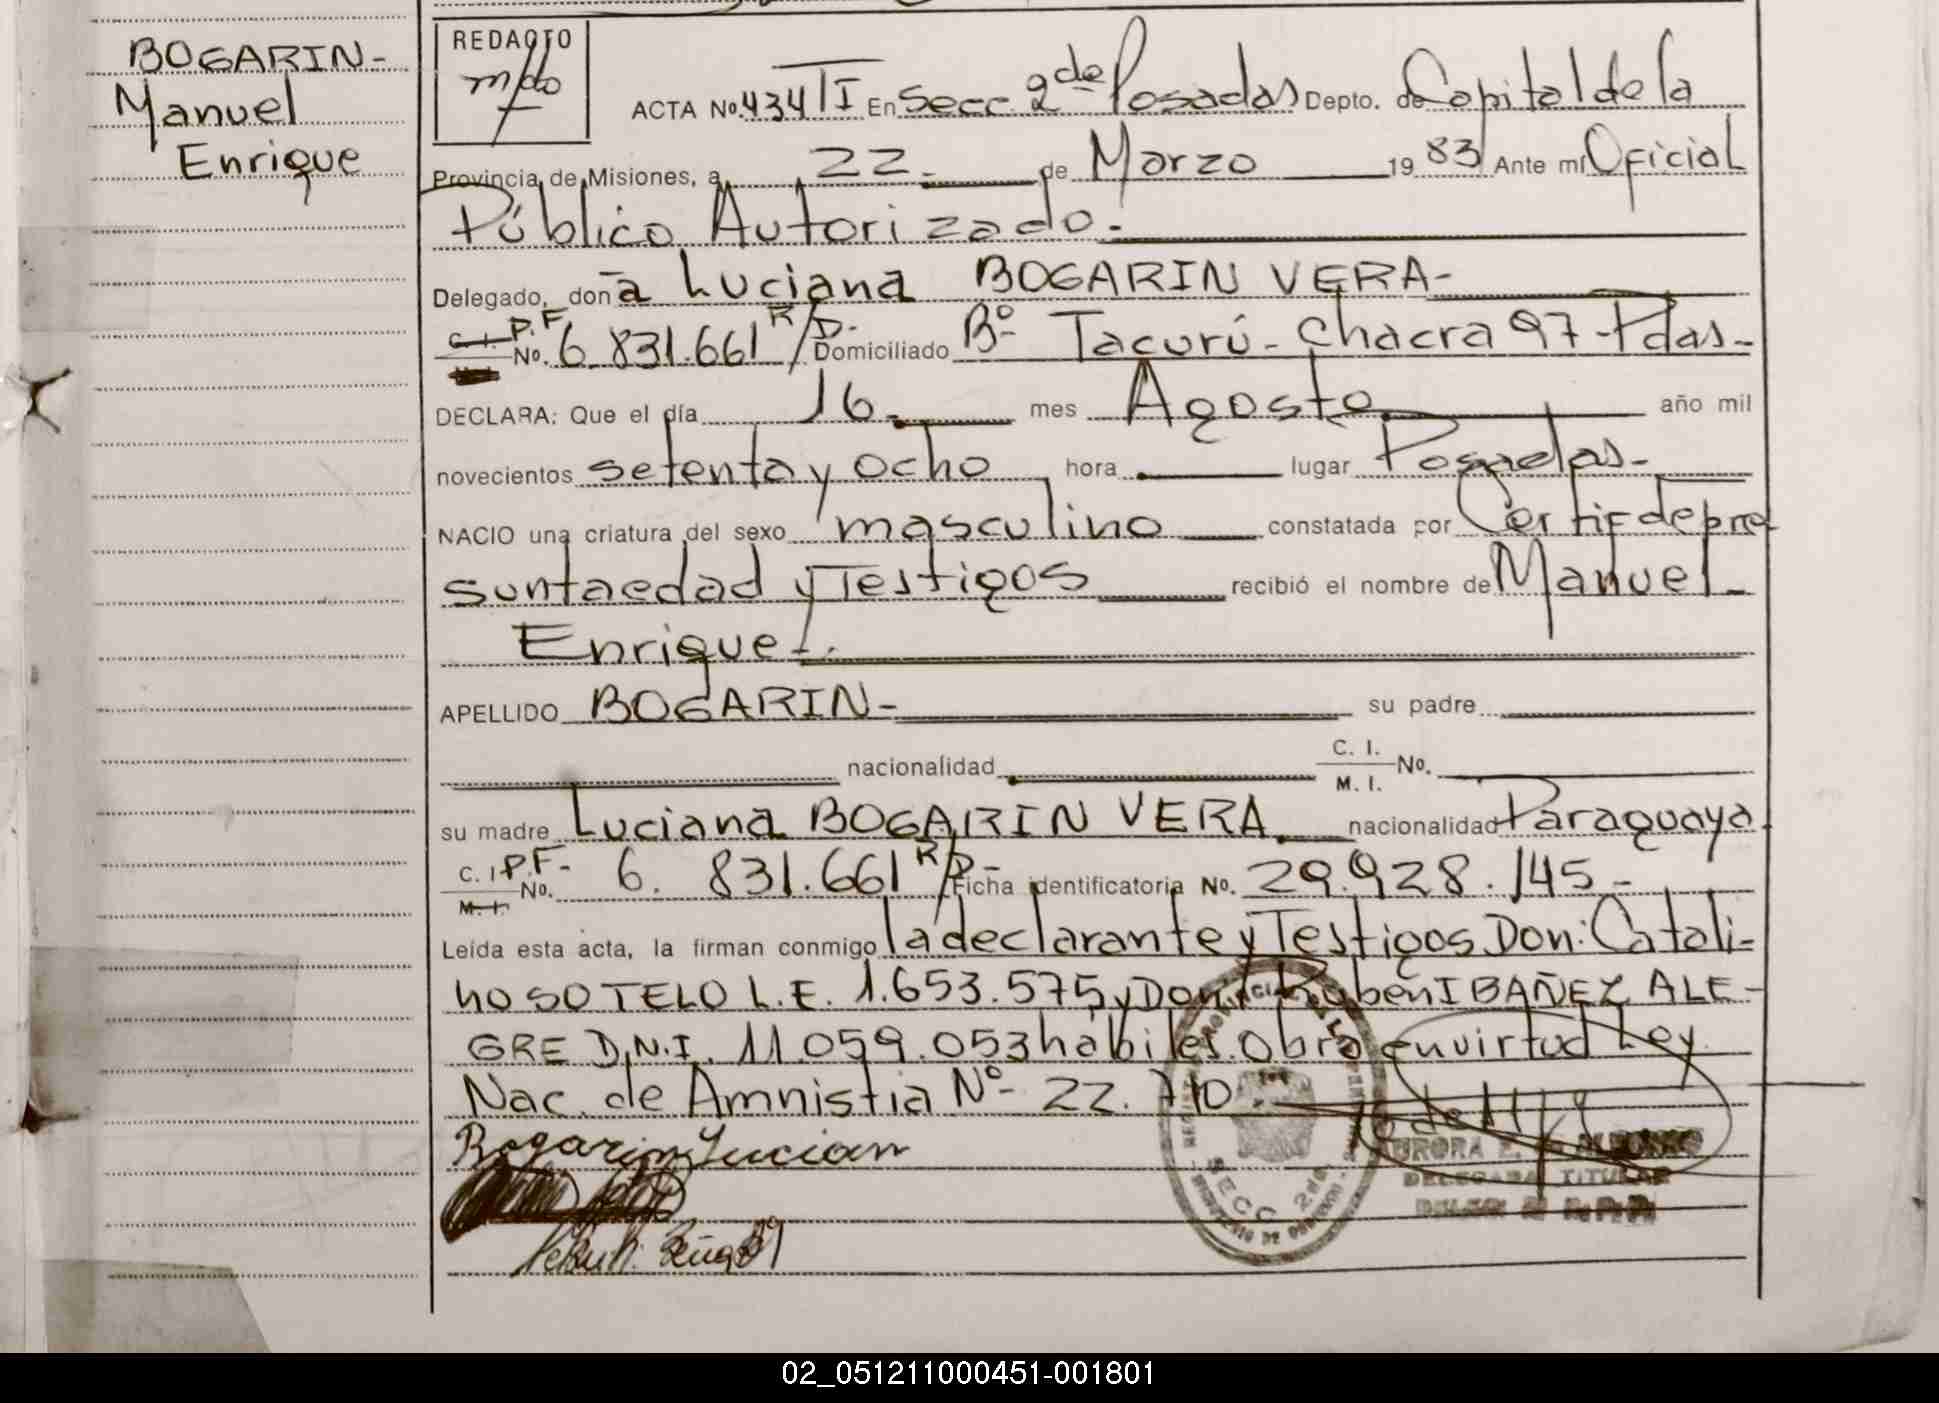 BOGARIN-
Manuel
Enrique
REDACTO
ACTA No. 434 TI En Secc 2da Posadas Depto. de Capital de la
Provincia de Misiones, a 22 de Marzo 1983 Ante mí Oficial
Público Autorizado.-
Delegado, doña Luciana BOGARIN VERA-
C. I. P.F No. 6.831.661 R/D.- Domiciliado Bº- Tacurú - Chacra 97 - Pdas-
DECLARA: Que el día 16 mes Agosto año mil
novecientos setenta y ocho hora lugar Posadas-
NACIO una criatura del sexo masculino constatada por Certif de pre
sunta edad y Testigos recibió el nombre de Manuel
Enrique-.
APELLIDO BOGARIN- su padre
nacionalidad C. I. M. I. No.
su madre Luciana BOGARIN VERA nacionalidad Paraguaya
C. I. P.F- M. I. No. 6.831.661 R/D- Ficha identificatoria No. 29.928./45-
Leída esta acta, la firman conmigo la declarante y Testigos Don: Catali-
no SOTELO L.E. 1.653.575 y Don: Rubén IBAÑEZ ALE-
GRE D.N.I. 11.059.053 hábiles. Obra en virtud Ley
Nac. de Amnistia Nº- 22.710
Bogarin Lucian
SECC 2da
DELEGADA TITULAR
02_051211000451-001801